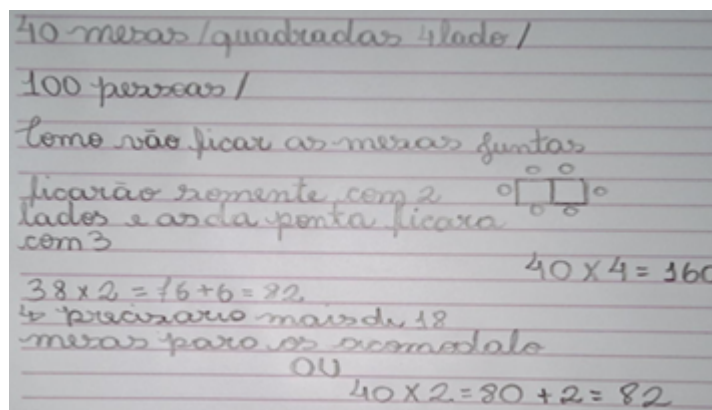 40 mesas /quadradas 4lado/
100 pessoas/
Como vão ficar as mesas juntas
ficarão somente com 2
lados e as da ponta ficara
com 3
40 x 4 = 160
38 x 2 = 76 + 6 = 82
precisario mais de 18
mesas para os acomodalo
OU
40 x 2 = 80 + 2 = 82